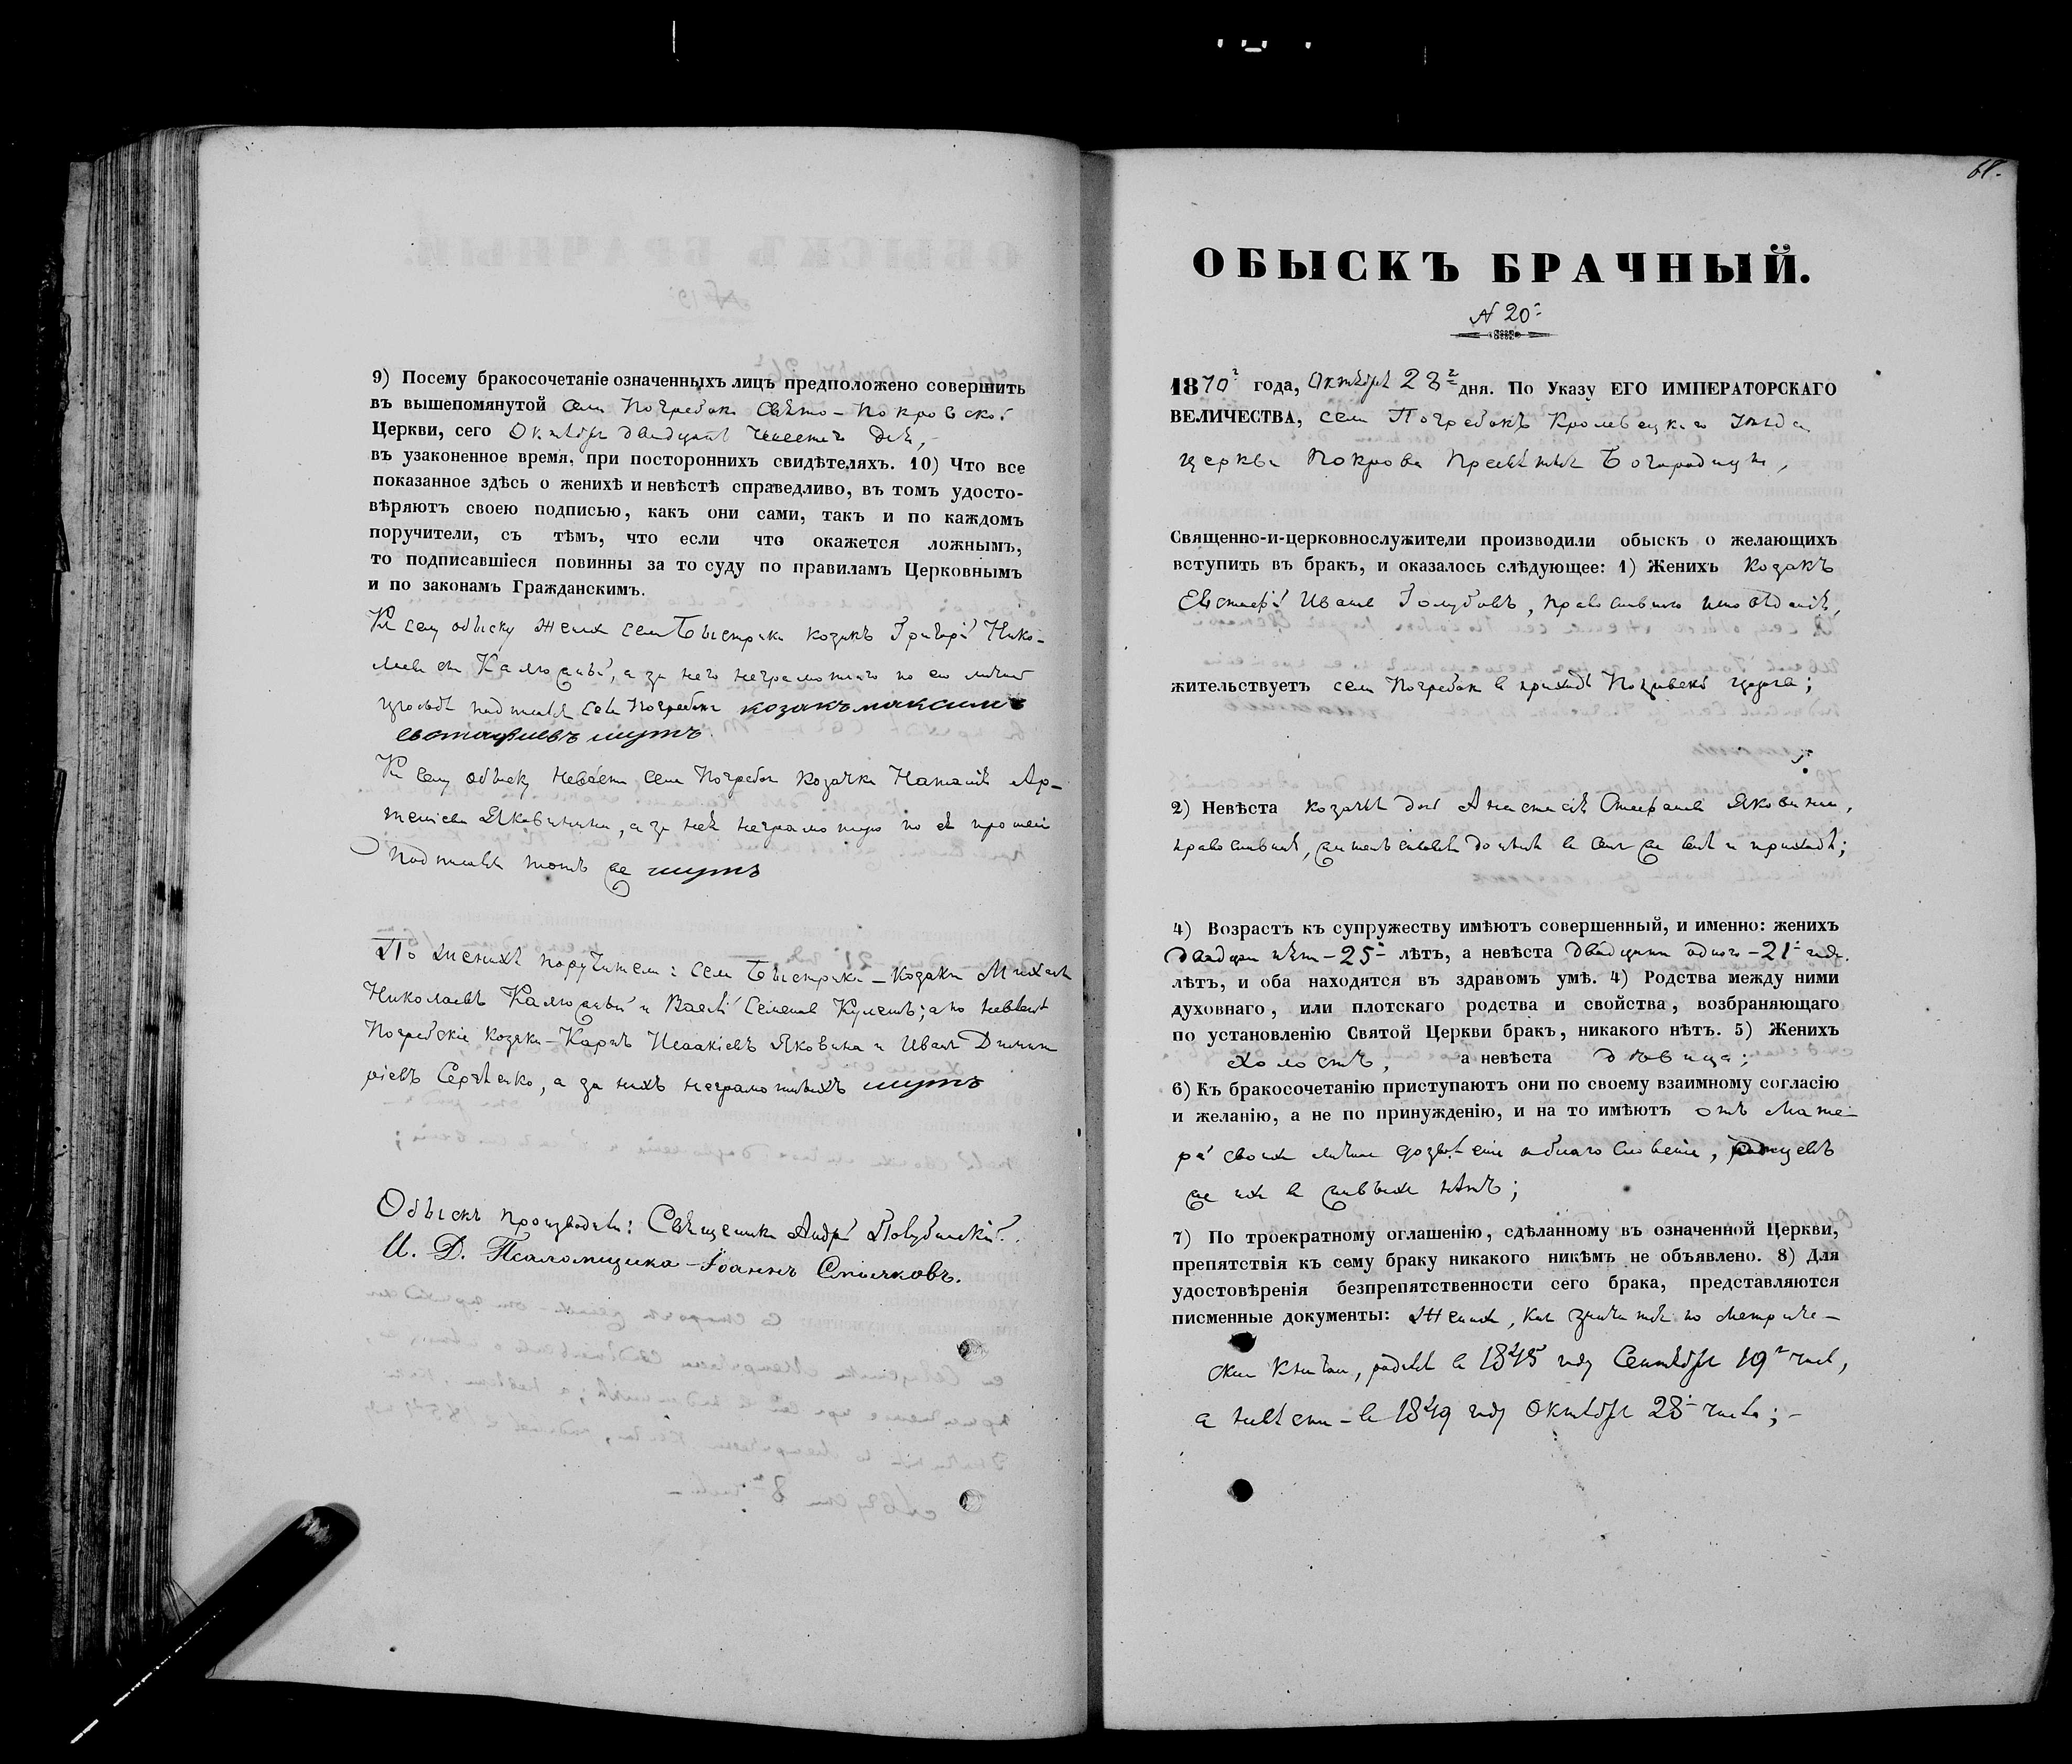 9) Посему бракосочетаніе означенныхъ лицъ предположено совершить
въ вышепомянутой села Погребокъ Свято-Покровской
Церкви, сего Октября двадцать шестого дня,
въ узаконенное время, при постороннихъ свидѣтеляхъ. 10) Что все
показанное здѣсь о женихѣ и невѣстѣ справедливо, въ томъ удосто-
вѣряютъ своею подписью, какъ они сами, такъ и по каждомъ
поручители, съ тѣмъ, что если что окажется ложнымъ,
то подписавшіеся повинны за то суду по правиламъ Церковнымъ
и по законамъ Гражданскимъ.
Къ сему обыску женихъ села Быстрика козакъ Григорій Нико-
лаевъ, а за него неграмотнаго по его личной
просьбѣ подписался села Погребокъ козакъ максимъ
евстафиевъ шутъ
Къ сему обыску невѣста села Погребокъ козачка Наталія Ар-
темиева Яковинина, а за нея неграмотную по ея прошенію
подписался тотъ же шутъ
По женихѣ поручители: села Быстрика - козаки Михаилъ
Николаевъ и Василій Семеновъ Кулешъ; а по невѣстѣ
Погребскіе козаки - Карпъ Исаакіевъ Яковина и Иванъ Димит
ріевъ Сергѣенко, а за нихъ неграмотныхъ шутъ
Обыскъ производили: Священникъ Андрей
И. Д. Псаломщика - Іоаннъ Спичковъ.
68.
ОБЫСКЪ БРАЧНЫЙ.
N 20
1870 года, Октября 28 дня. По Указу ЕГО ИМПЕРАТОРСКАГО
ВЕЛИЧЕСТВА, села Погребокъ Кролевецкаго уѣзда
церкви Покрова Пресвятыя Богородицы,
Священно-и-церковнослужители производили обыскъ о желающихъ
вступить въ бракъ, и оказалось слѣдующее: 1) Женихъ козакъ
Евстафій Ивановъ Голубовъ, православнаго исповѣданія,
жительствуетъ села Погребокъ въ приходѣ Покровской церкви;
2) Невѣста козачья дочь Анастасія Стефанова Яковина,
православная, жительствовала донынѣ въ семъ же селѣ и приходѣ;
4) Возрастъ къ супружеству имѣютъ совершенный, и именно: женихъ
двадцати пяти - 25 лѣтъ, а невѣста двадцати одного - 21 года.
лѣтъ, и оба находятся въ здравомъ умѣ. 4) Родства между ними
духовнаго, или плотскаго родства и свойства, возбраняющаго
по установленію Святой Церкви бракъ, никакого нѣтъ. 5) Женихъ
холостъ, а невѣста дѣвица;
6) Къ бракосочетанію приступаютъ они по своему взаимному согласію
и желанію, а не по принужденію, и на то имѣютъ отъ Мате-
рей своихъ личное дозволеніе и благословеніе, отцевъ
же ихъ въ живыхъ нѣтъ;
7) По троекратному оглашенію, сдѣланному въ означенной Церкви,
препятствія къ сему браку никакого никѣмъ не объявлено. 8) Для
удостовѣренія безпрепятственности сего брака, представляются
писменные документы: Женихъ, какъ значится по метриче-
ской книгѣ, родился въ 1845 году Сентября 19 числ,
а невѣста - въ 1849 году Октября 28 числа; -